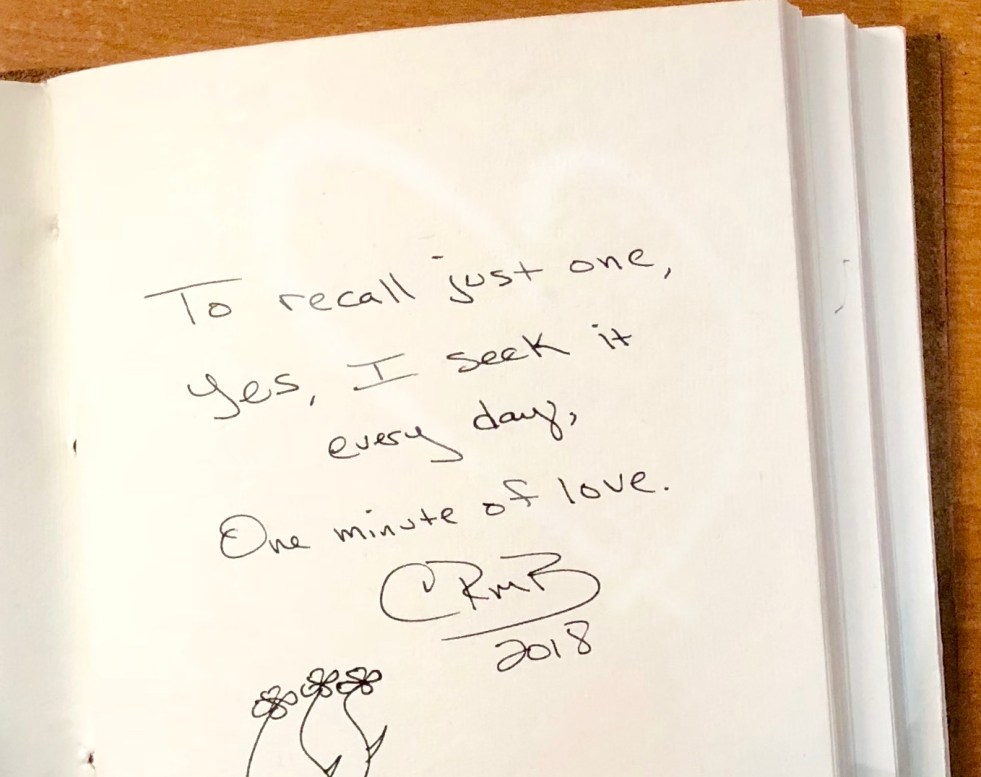 To recall just one,
Yes, I seek it
every day,
One minute of love.
CRMB
2018